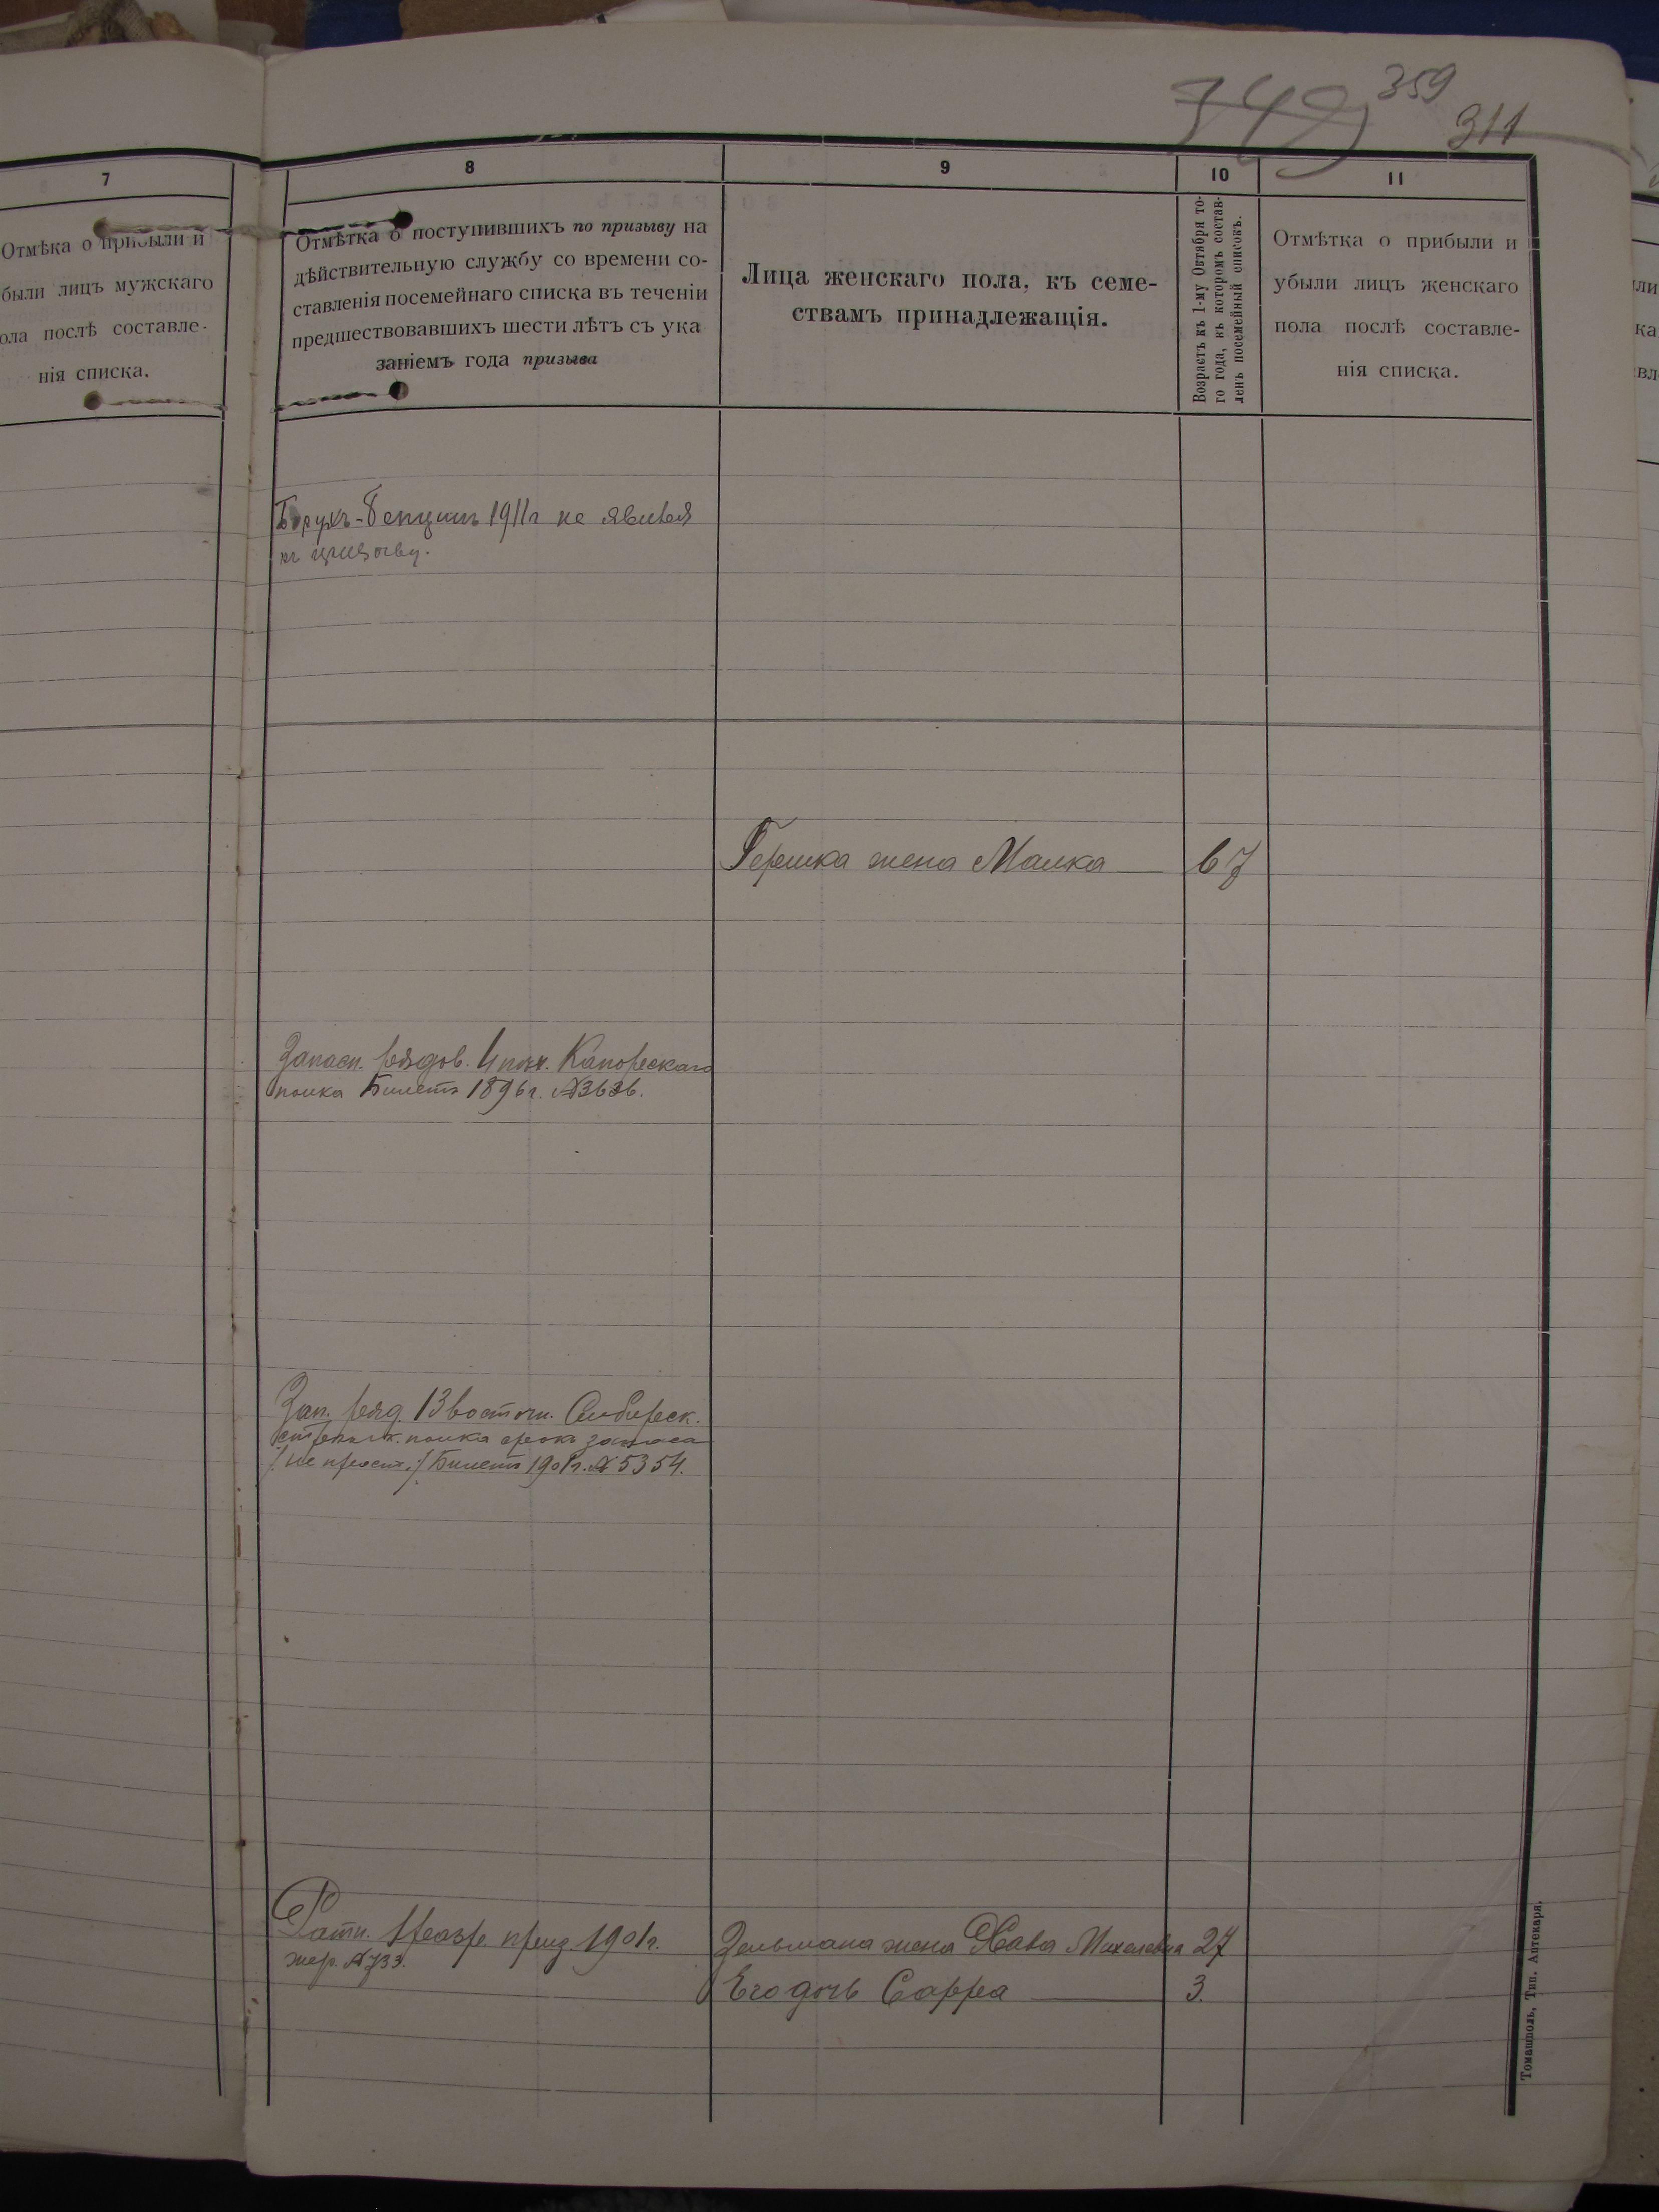 349 359 311
7
Отмѣка о прибыли и
были лицъ мужскаго
ола послѣ составле-
нія списка.
8
Отмѣтка о поступившихъ по призыву на
дѣйствительную службу со времени со-
ставленія посемейнаго списка въ теченіи
предшествовавшихъ шести лѣтъ съ ука
заніемъ года призыва
9
Лица женскаго пола, къ семе-
ствамъ принадлежащія.
10
Возрастъ къ 1-му Октября то-
го года, въ которомъ состав-
ленъ посемейный списокъ.
11
Отмѣтка о прибыли и
убыли лицъ женскаго
пола послѣ составле-
нія списка.
Борухъ-Бенціонъ 1911г не явился
къ призыву.
Гершка жена Малка 67
Запасн. рядов. 4 пѣх. Капорскаго
полка Билетъ 1896г. №3636.
Зап. ряд. 13 восточн. Сибирск.
стрѣлк. полка срокъ запаса
/не просл./ Билетъ 1901г. № 5354.
Ратн. 1 разр. приз. 1901г.
жер. №733.
Зельмана жена Хава Михелевна 27
Его дочь Сарра 3.
Томашполь, Тип. Аптекаря.